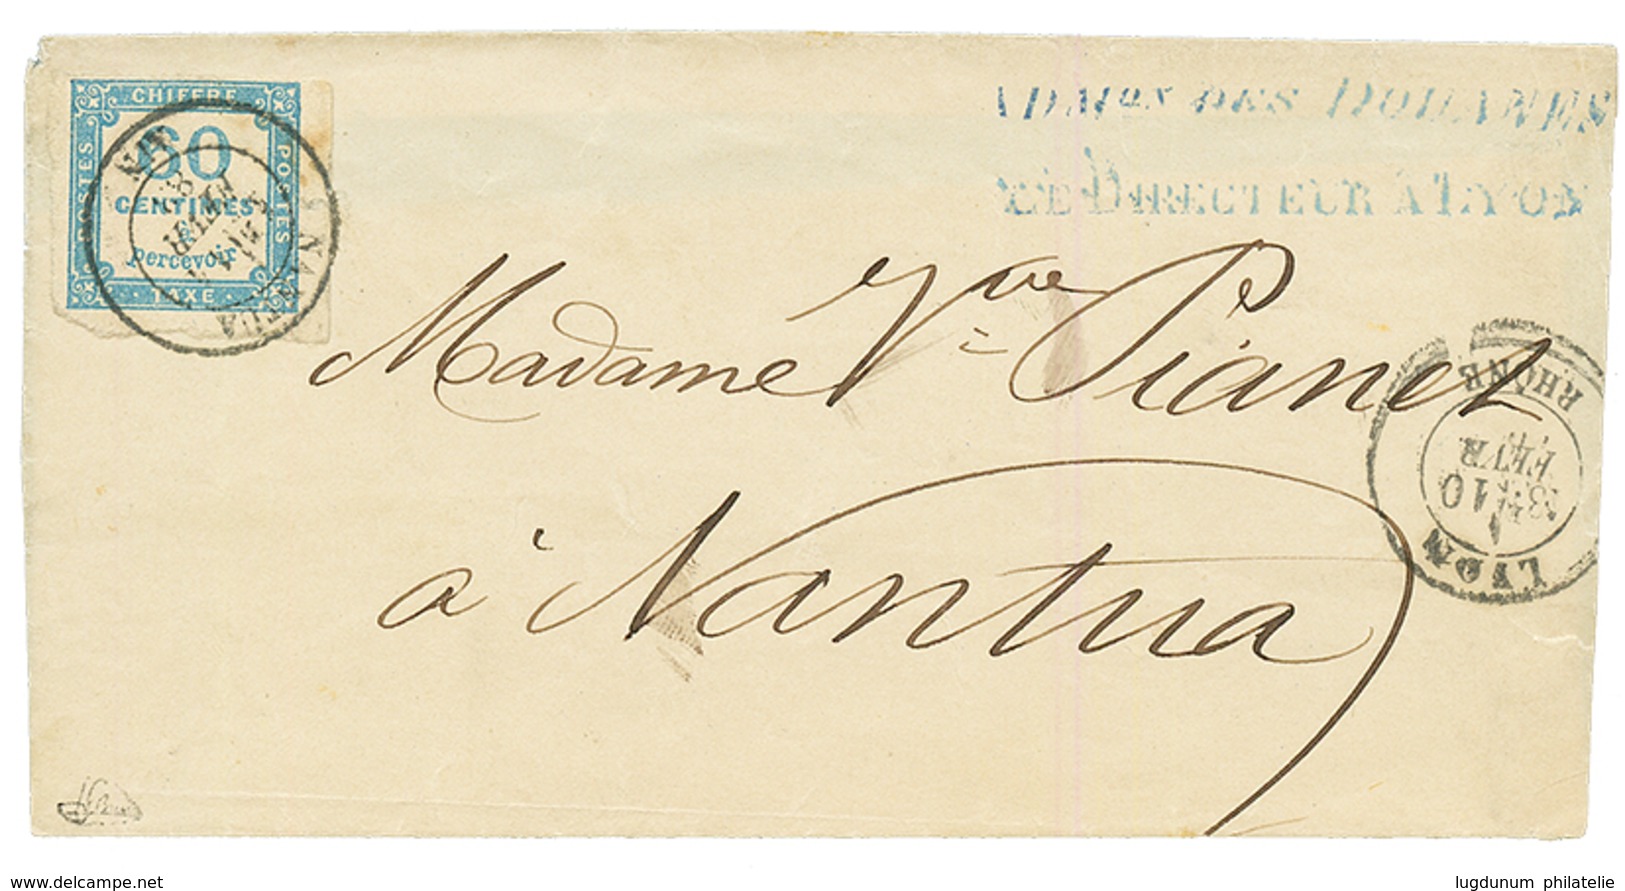 CHIFFRE
POSTES
60
CENTIMES
à
percevoir
POSTES
· TAXE ·
NANTUA
ADMON DES DOUANES
LE DIRECTEUR À LYON
Madame Vve Pianet
à Nantua
LYON
10
FEVR.
RHÔNE
www.delcampe.net
lugdunum philatelie